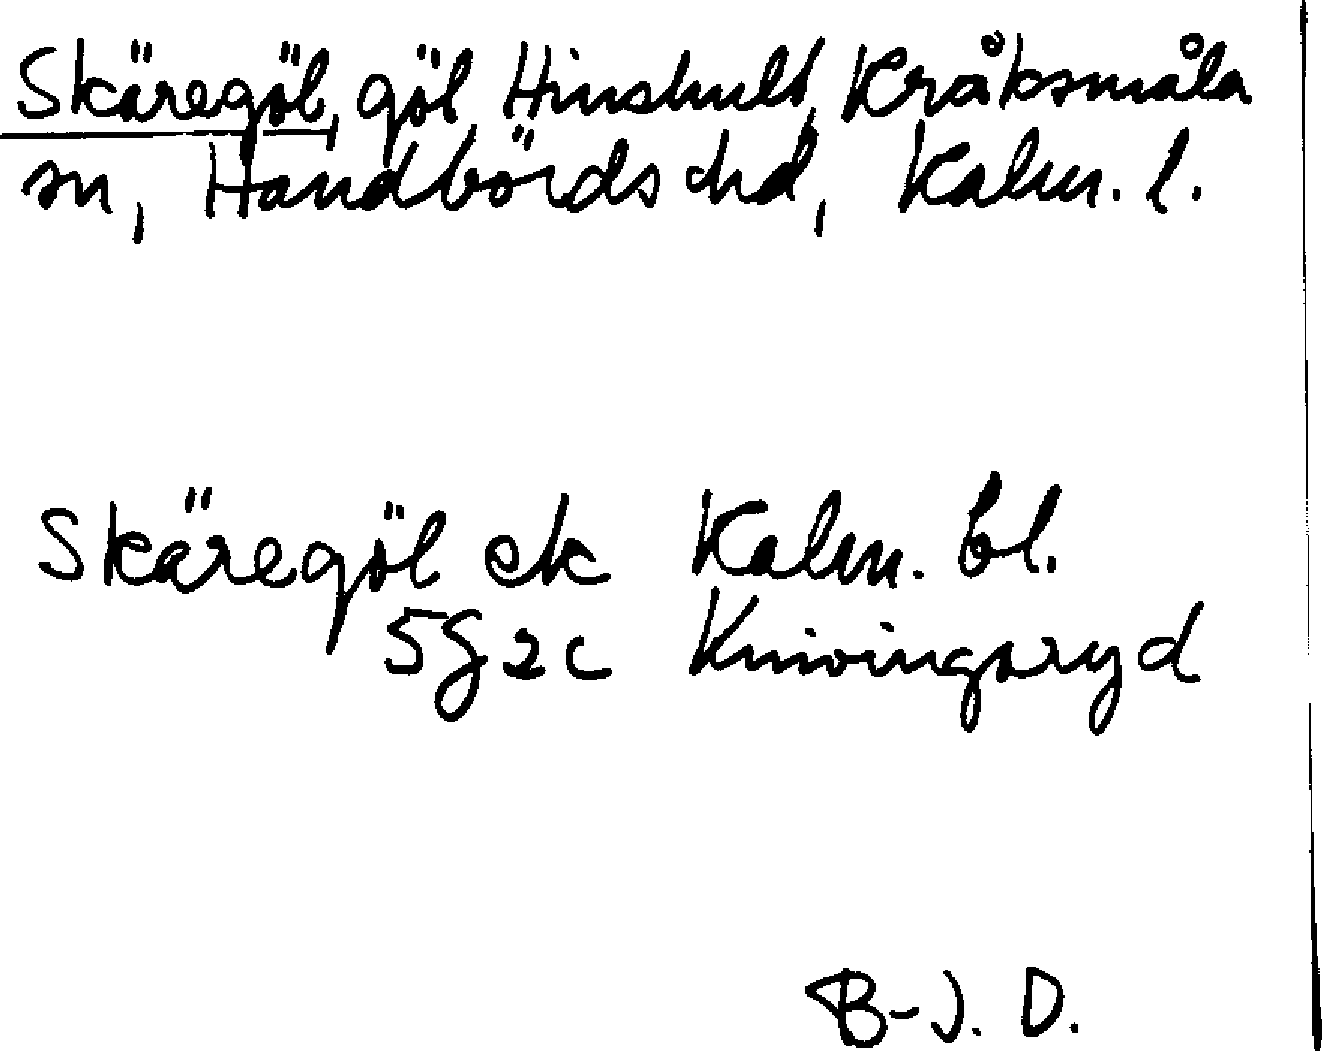 Skäregöl, göl, Hinshult, Kråksmåla
sn, Handbörds hd, Kalm. l.
Skäregöl ek Kalm. bl.
5g2c Knivingaryd
B-J. D.